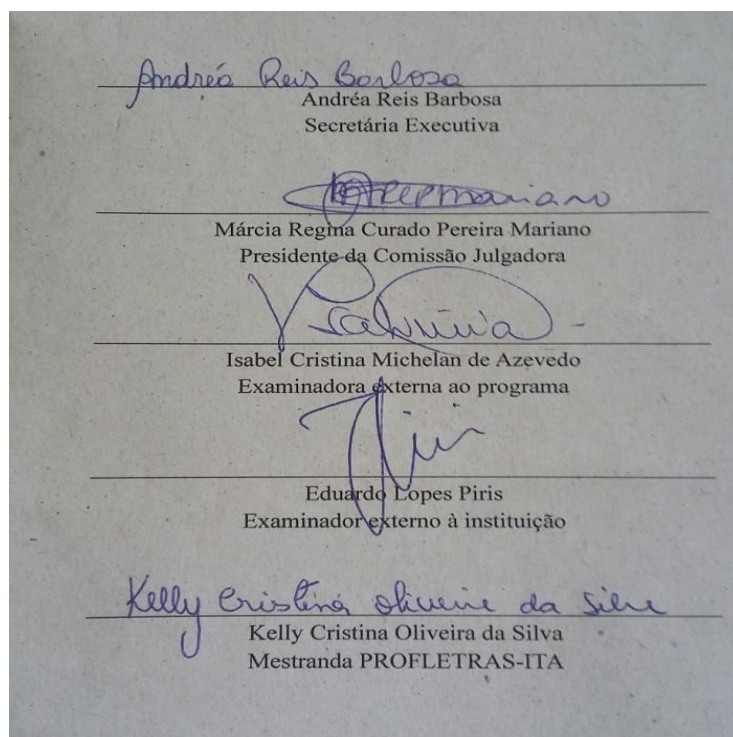 Andréa Reis Barbosa
Andréa Reis Barbosa
Secretária Executiva
Mariano
Márcia Regina Curado Pereira Mariano
Presidente da Comissão Julgadora
Isabel Cristina Michelan de Azevedo
Examinadora externa ao programa
Eduardo Lopes Piris
Examinador externo à instituição
Kelly Cristina Oliveira da Silva
Kelly Cristina Oliveira da Silva
Mestranda PROFLETRAS-ITA